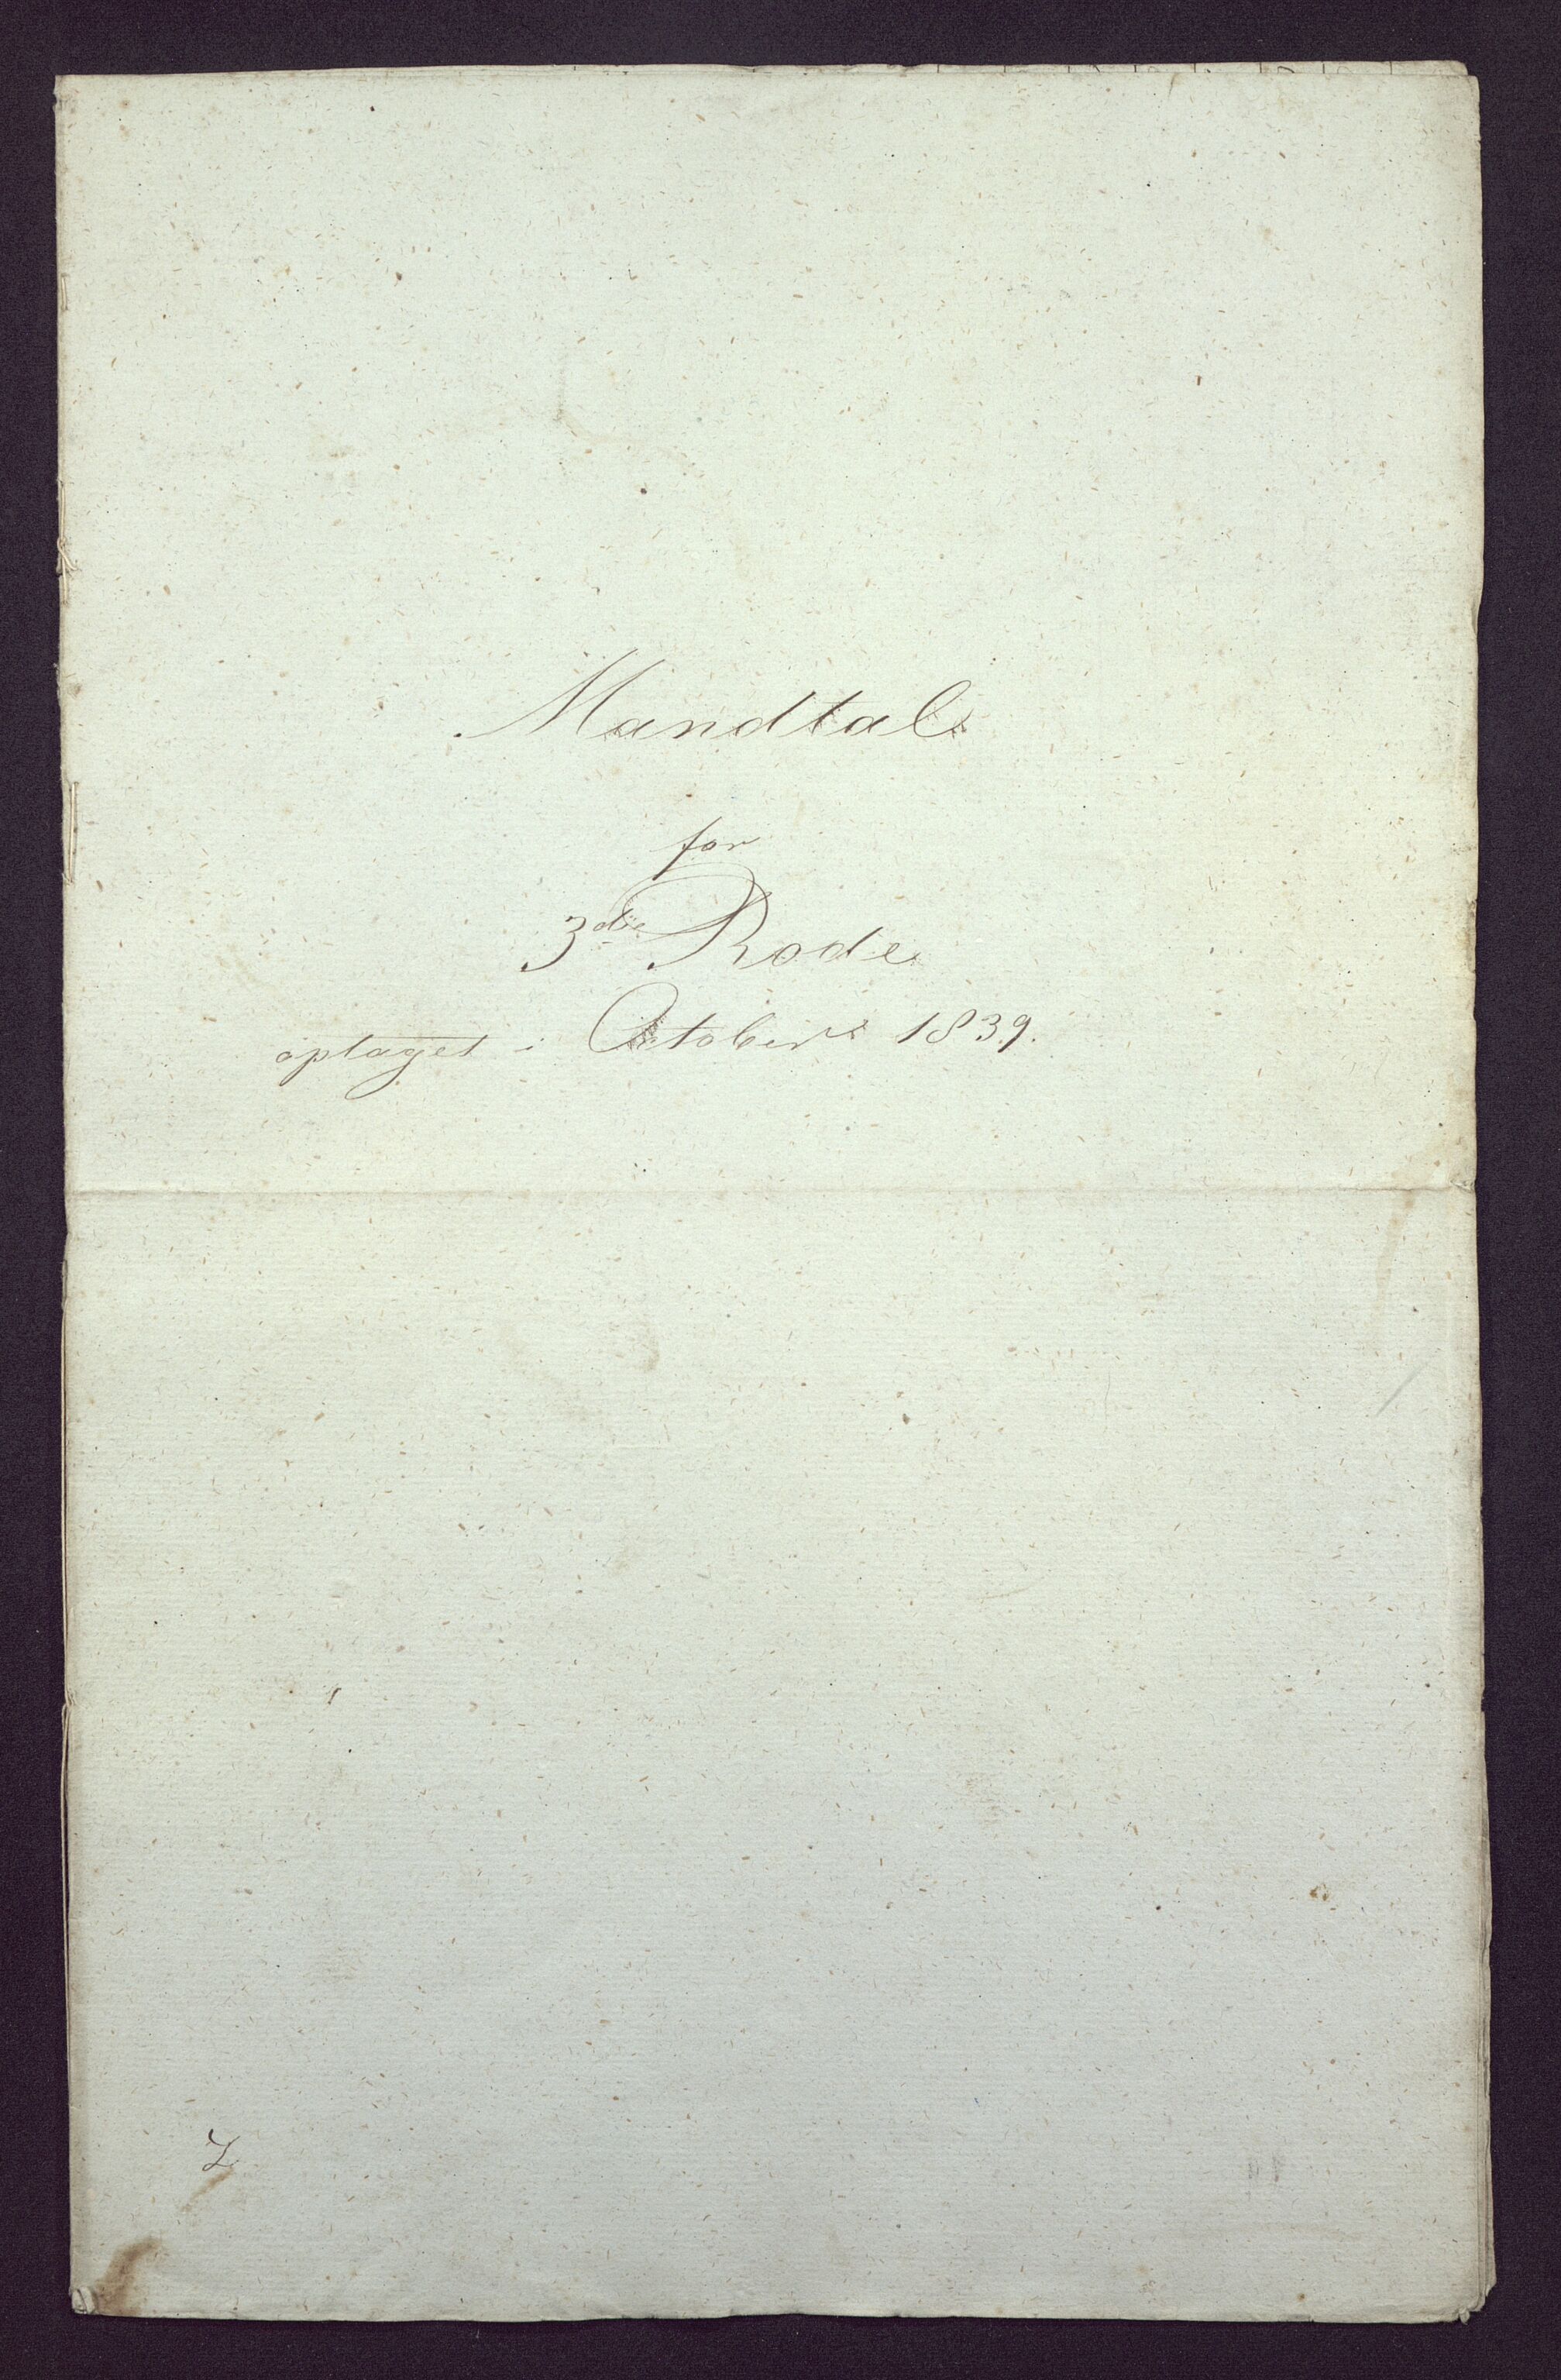 Mandtal
for
3die Rode
optaget i October 1839.